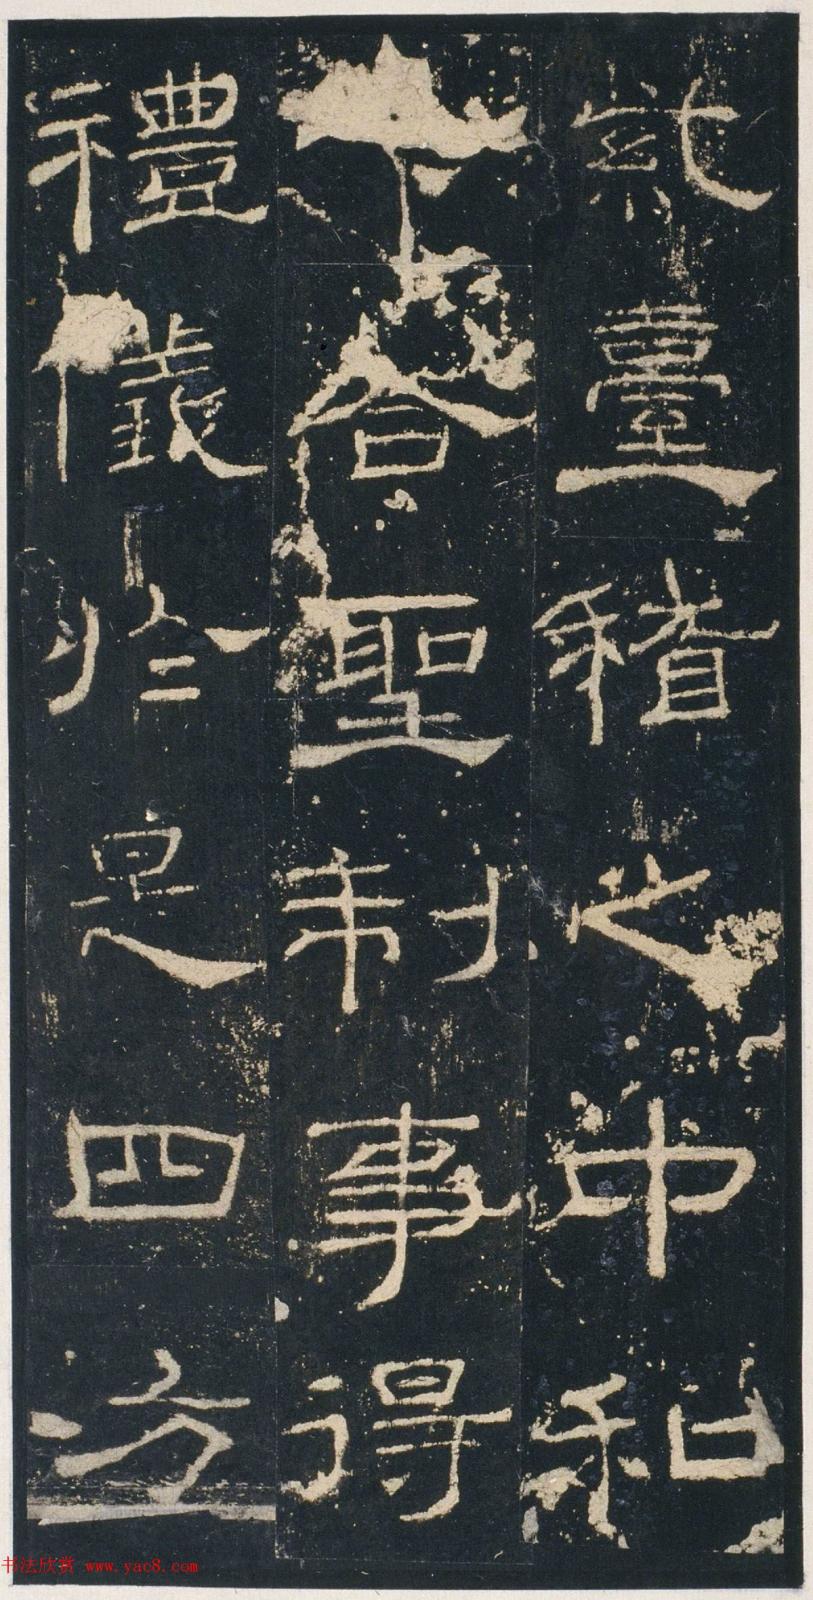 紫臺稽之中和
下合聖制事得
禮儀於是四方
书法欣赏 www.yac8.com